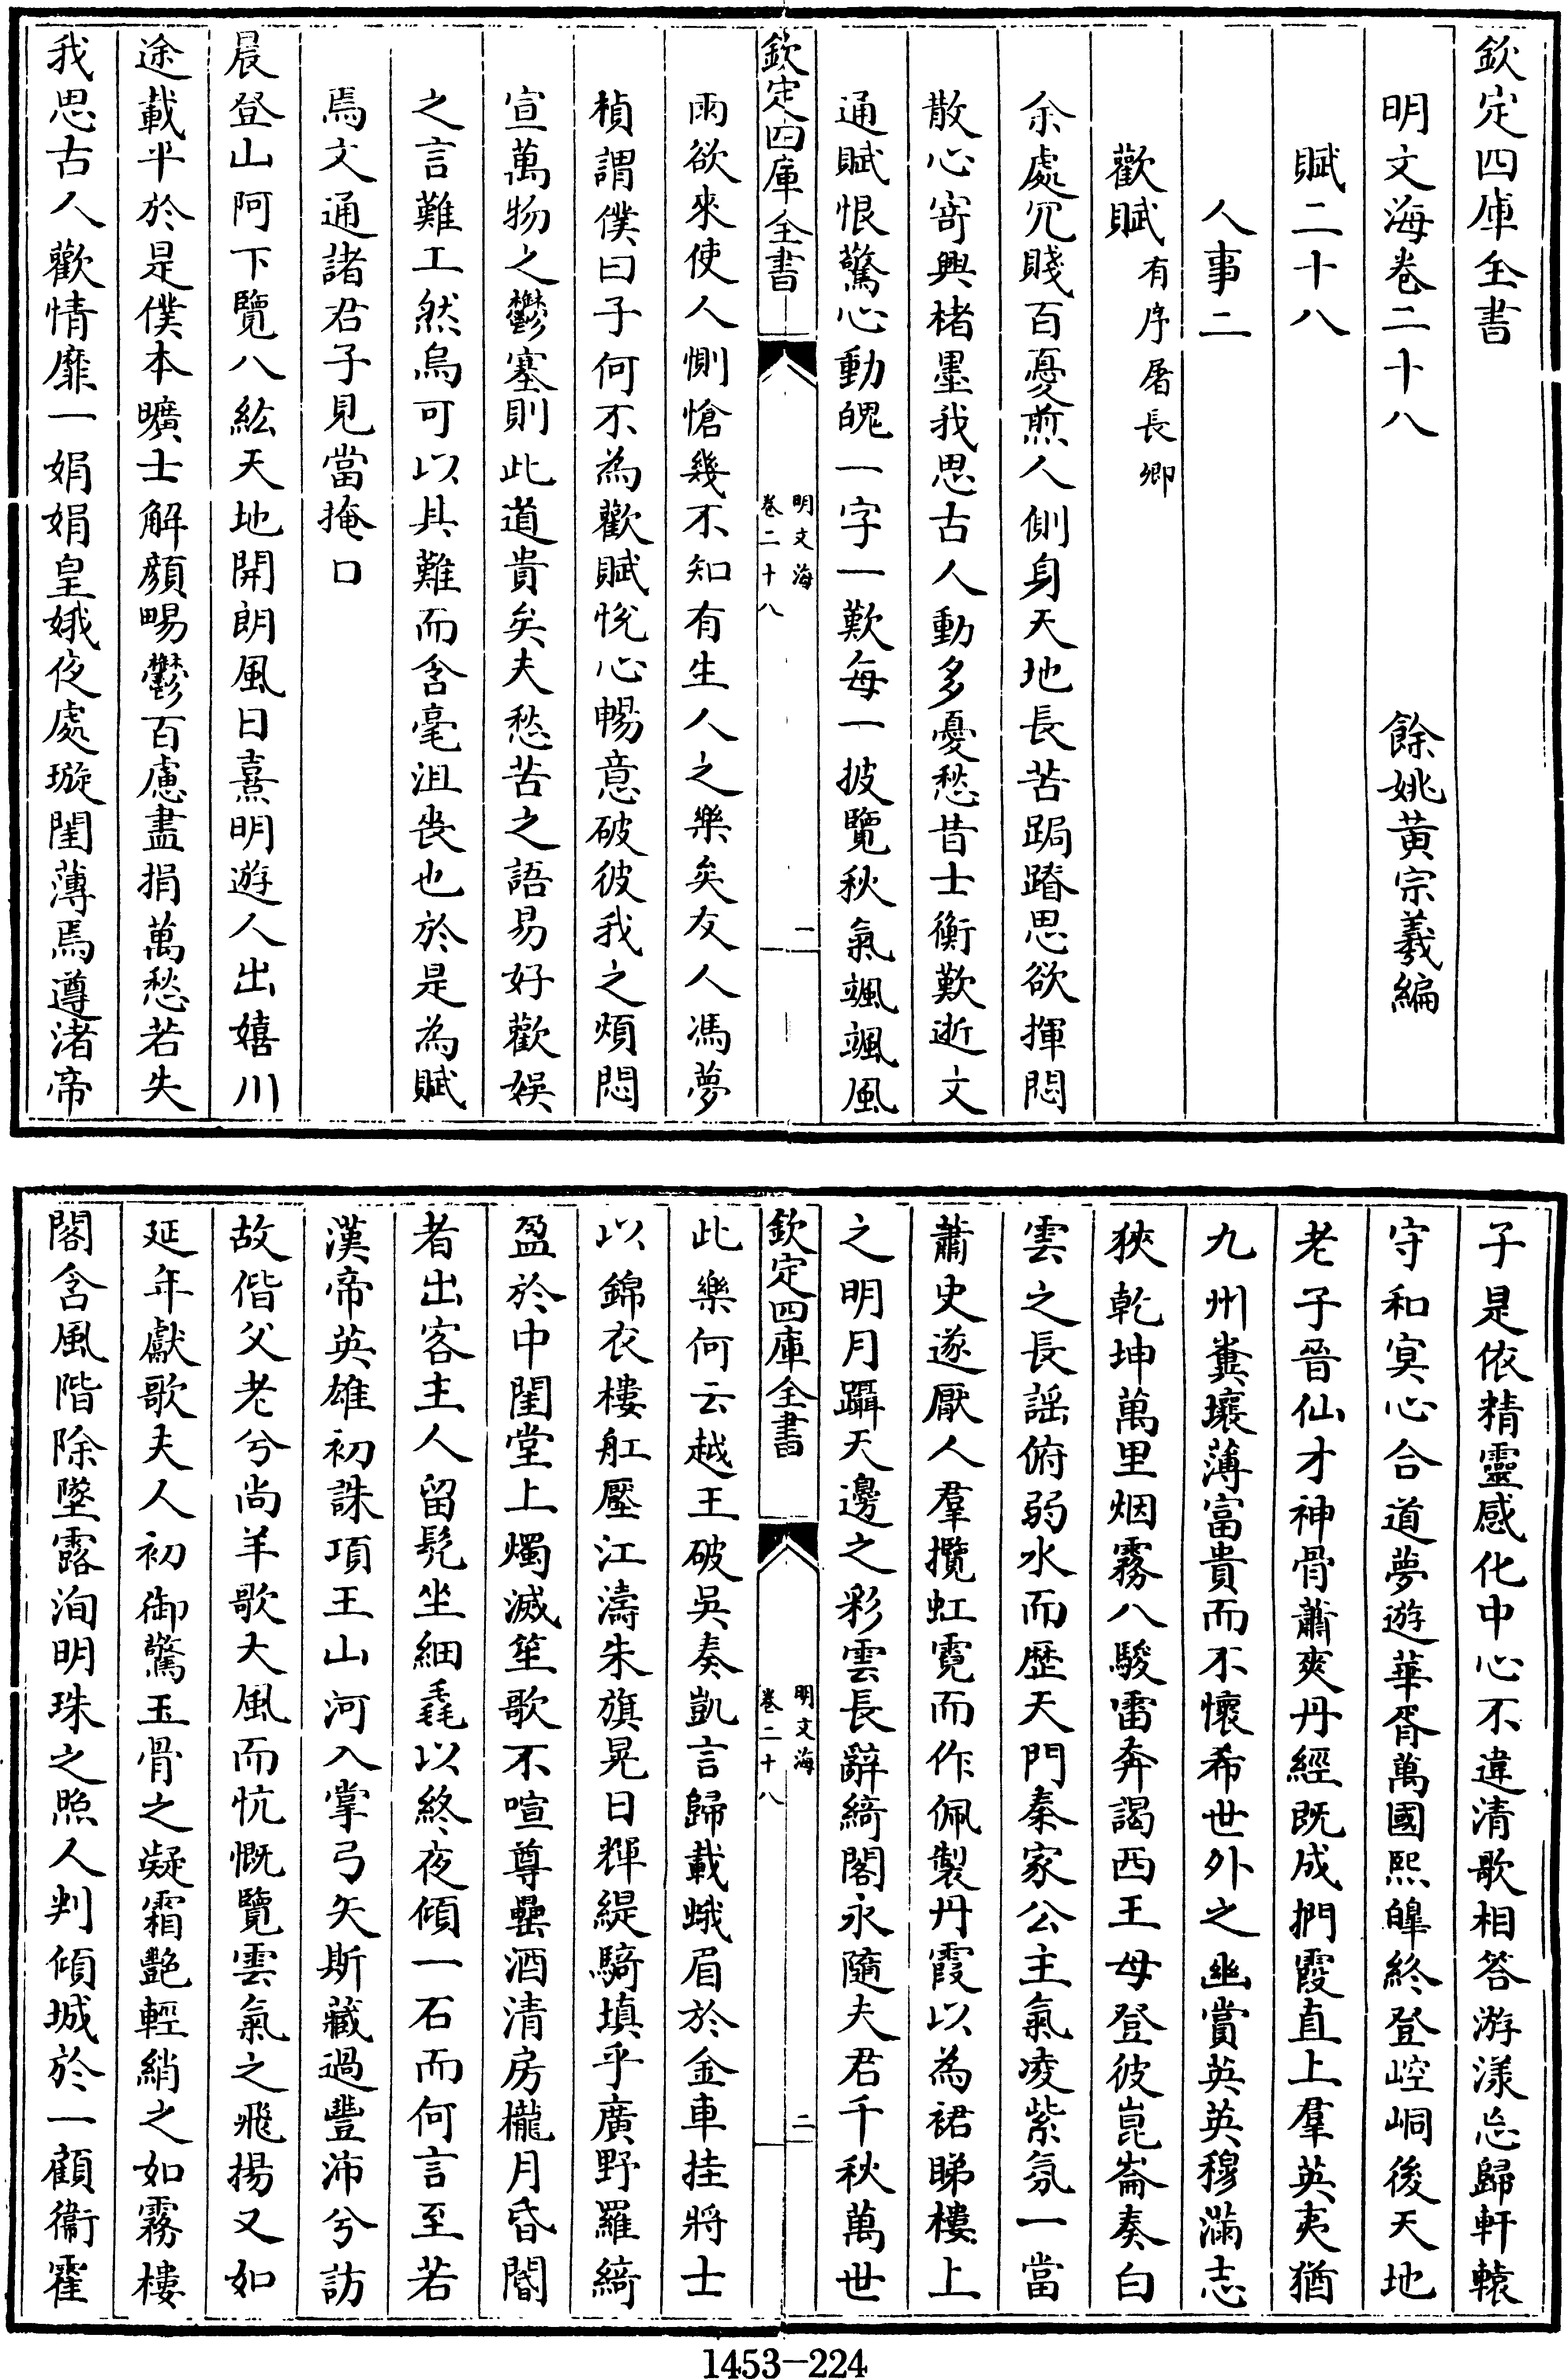 欽定四庫全書
明文海卷二十八
餘姚黄宗羲編
賦二十八
人事二
歡賦有序屠長卿
余處冗賤百憂煎人側身天地長苦跼蹐思欲揮悶
散心寄興楮墨我思古人動多憂愁昔士衡歎逝文
通賦恨驚心動魄一字一歎每一披覽秋氣颯颯風
欽定四庫全書
明文海
卷二十八
一
雨欲來使人惻愴幾不知有生人之樂矣友人馮夢
楨謂僕曰子何不為歡賦悅心暢意破彼我之煩悶
宣萬物之鬱塞則此道貴矣夫愁苦之語易好歡娛
之言難工然烏可以其難而含毫沮喪也於是為賦
焉文通諸君子見當掩口
晨登山阿下覽八紘天地開朗風日熹明遊人出嬉川
途載平於是僕本曠士解顏暢鬱百慮盡捐萬愁若失
我思古人歡情靡一娟娟皇娥夜處璇閨薄焉遵渚帝
子是依精靈感化中心不違清歌相答游漾忘歸軒轅
守和冥心合道夢遊華胥萬國熙皞終登崆峒後天地
老子晉仙才神骨蕭爽丹經既成捫霞直上羣英夷猶
九州糞壤薄富貴而不懷希世外之幽賞英英穆滿志
狹乾坤萬里烟霧八駿雷奔謁西王母登彼崑崙奏白
雲之長謠俯弱水而歴天門秦家公主氣凌紫氛一當
蕭史遂厭人羣攬虹霓而作佩製丹霞以為裙睇樓上
之明月躡天邊之彩雲長辭綺閣永隨夫君千秋萬世
欽定四庫全書
明文海
卷二十八
二
此樂何云越王破吳奏凱言歸載蛾眉於金車挂將士
以錦衣樓舡壓江濤朱旗晃日輝緹騎填乎廣野羅綺
盈於中閨堂上燭滅笙歌不喧尊罍酒清房櫳月昏閽
者出客主人留髡坐細毳以終夜傾一石而何言至若
漢帝英雄初誅項王山河入掌弓矢斯藏過豐沛兮訪
故偕父老兮尚羊歌大風而忼慨覽雲氣之飛揚又如
延年獻歌夫人初御驚玉骨之凝霜艷輕綃之如霧樓
閣含風階除墜露洵明珠之照人判傾城於一顧衞霍
1453—224